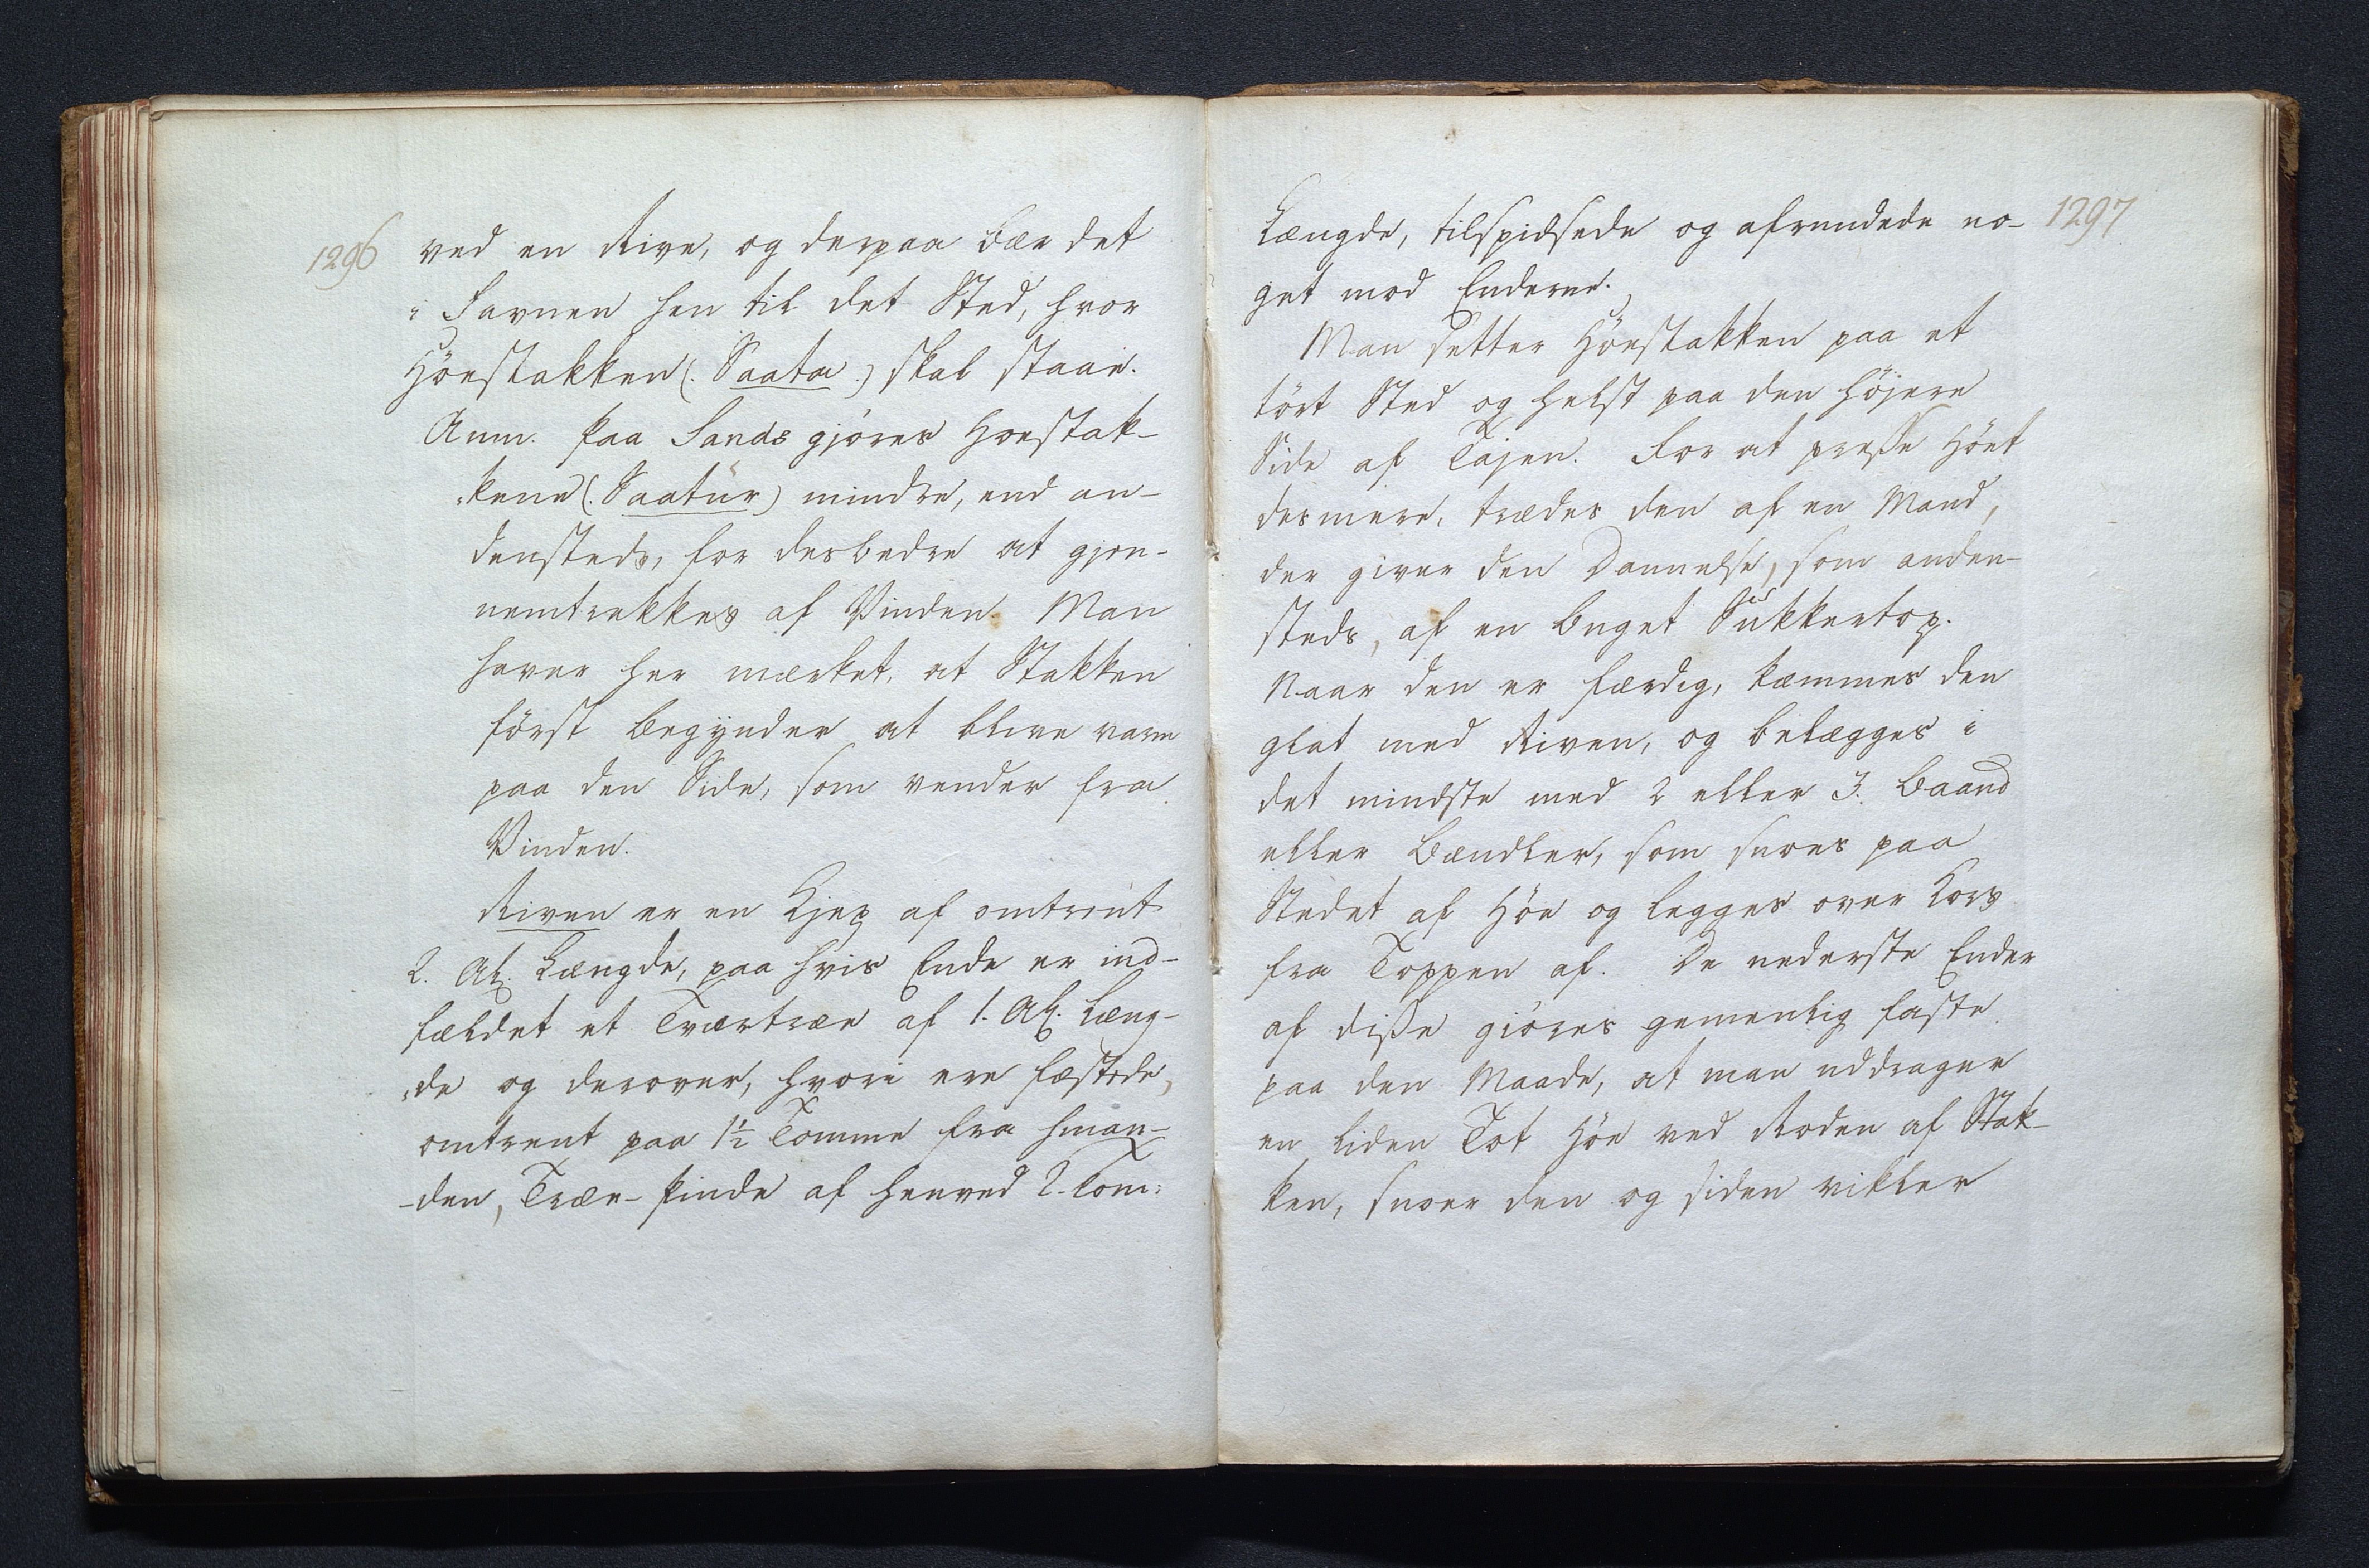 1296
ved en Rive, og derpaa bær det
i Favnen hen til det Sted, hvor
Höestakken (: Saata :) skal staae.
Anm. Paa Sandö gjöres Hoestak-
kene (: Saatür) mindre, end an-
densteds, for desbedre at gjen-
nemtrekkes af Vinden. Man
haver her mærket, at Stakken
först begÿnder at blive varm
paa den Side, som vender fra
Vinden.
Riven er en Kjep af omtrent
2. Al. Længde, paa hvis Ende er ind-
fældet et Tværtræe af 1. Al. Læng-
de og derover, hvori ere fæstede,
omtrent paa 1½ Tomme fra hinan-
den, Træe-Pinde af henved 2. Tom:
1297
Længde, tilspidsede og afrundede no-
get mod Enderne.
Man setter Höestakken paa et
tört Sted og helst paa den höjere
Side af Tajen. For at presse Höet
desmere, trædes den af en Mand,
der giver den Dannelse, som anden-
steds, af en buget Sukkertop.
Naar den er færdig, kæmmes den
glat med Riven, og belægges i
det mindste med 2 eller 3. Baand
eller Bændler, som snoes paa
Stedet af Höe og legges over Kors
fra Toppen af. De nederste Ender
af disse giöres gemenlig faste
paa den Maade, at man uddrager
en liden Tot Höe ved Roden af Stak-
ken, snoer den og siden vikler